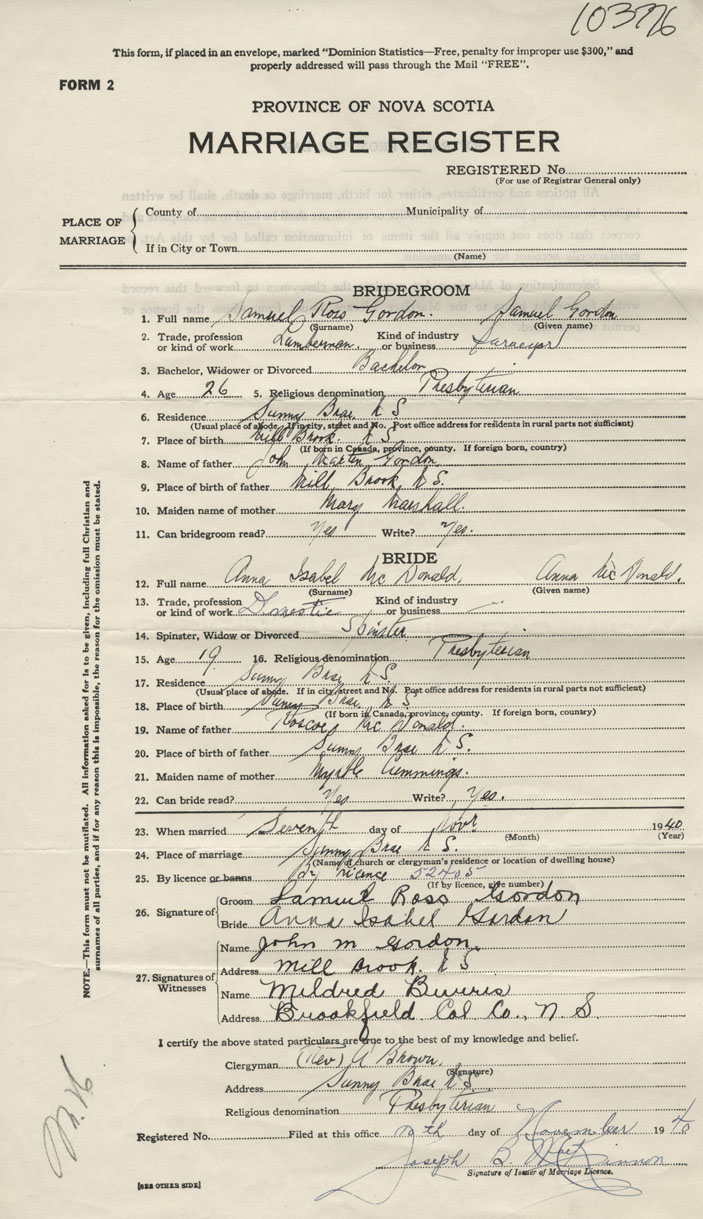 10376
This form, if placed in an envelope, marked "Dominion Statistics—Free, penalty for improper use $300," and
properly addressed will pass through the Mail "FREE".
FORM 2
PROVINCE OF NOVA SCOTIA
MARRIAGE REGISTER
REGISTERED No.
(For use of Registrar General only)
PLACE OF MARRIAGE
County of Municipality of
If in City or Town
(Name)
BRIDEGROOM
1. Full name Samuel Ross Gordon. Samuel Gordon
(Surname) (Given name)
2. Trade, profession or kind of work Lumberman. Kind of industry or business Surveyor
3. Bachelor, Widower or Divorced Bachelor
4. Age 26 5. Religious denomination Presbyterian
6. Residence Sunny Brae N S
(Usual place of abode. If in city, street and No. Post office address for residents in rural parts not sufficient)
7. Place of birth Mill Brook. N S.
(If born in Canada, province, county. If foreign born, country)
8. Name of father John Martin Gordon
9. Place of birth of father Mill Brook, N S.
10. Maiden name of mother Mary Marshall.
11. Can bridegroom read? Yes Write? Yes.
BRIDE
12. Full name Anna Isabel Mc Donald, Anna Mc Donald.
(Surname) (Given name)
13. Trade, profession or kind of work Domestic Kind of industry or business —
14. Spinster, Widow or Divorced Spinster
15. Age 19 16. Religious denomination Presbyterian
17. Residence Sunny Brae N S.
(Usual place of abode. If in city, street and No. Post office address for residents in rural parts not sufficient)
18. Place of birth Sunny Brae N S
(If born in Canada, province, county. If foreign born, country)
19. Name of father Roscoe Mc Donald.
20. Place of birth of father Sunny Brae N S.
21. Maiden name of mother Myrtle Cummings.
22. Can bride read? Yes Write? Yes.
23. When married Seventh day of Novr 1940
(Month) (Year)
24. Place of marriage Sunny Brae N S.
(Name of church or clergyman's residence or location of dwelling house)
25. By licence or banns By licence 52405
(If by licence, give number)
26. Signature of
Groom Samuel Ross Gordon
Bride Anna Isabel Gordon
27. Signatures of Witnesses
Name John M Gordon.
Address Mill Brook. N S
Name Mildred
Address Brookfield Col Co., N S.
I certify the above stated particulars are true to the best of my knowledge and belief.
Clergyman (Rev) A Brown.
(Signature)
Address Sunny Brae N S.
Religious denomination Presbyterian
Registered No. Filed at this office day of November 1940
Joseph B. MacKinnon
Signature of Issuer of Marriage Licence.
[SEE OTHER SIDE]
NOTE.—This form must not be mutilated. All information asked for is to be given, including full Christian and
surnames of all parties, and if for any reason this is impossible, the reason for the omission must be stated.